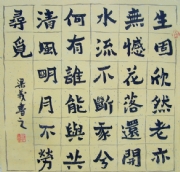 生固欣然老亦
無憾花落還開
水流不斷我兮
何有誰能與共
清風明月不勞
尋覓